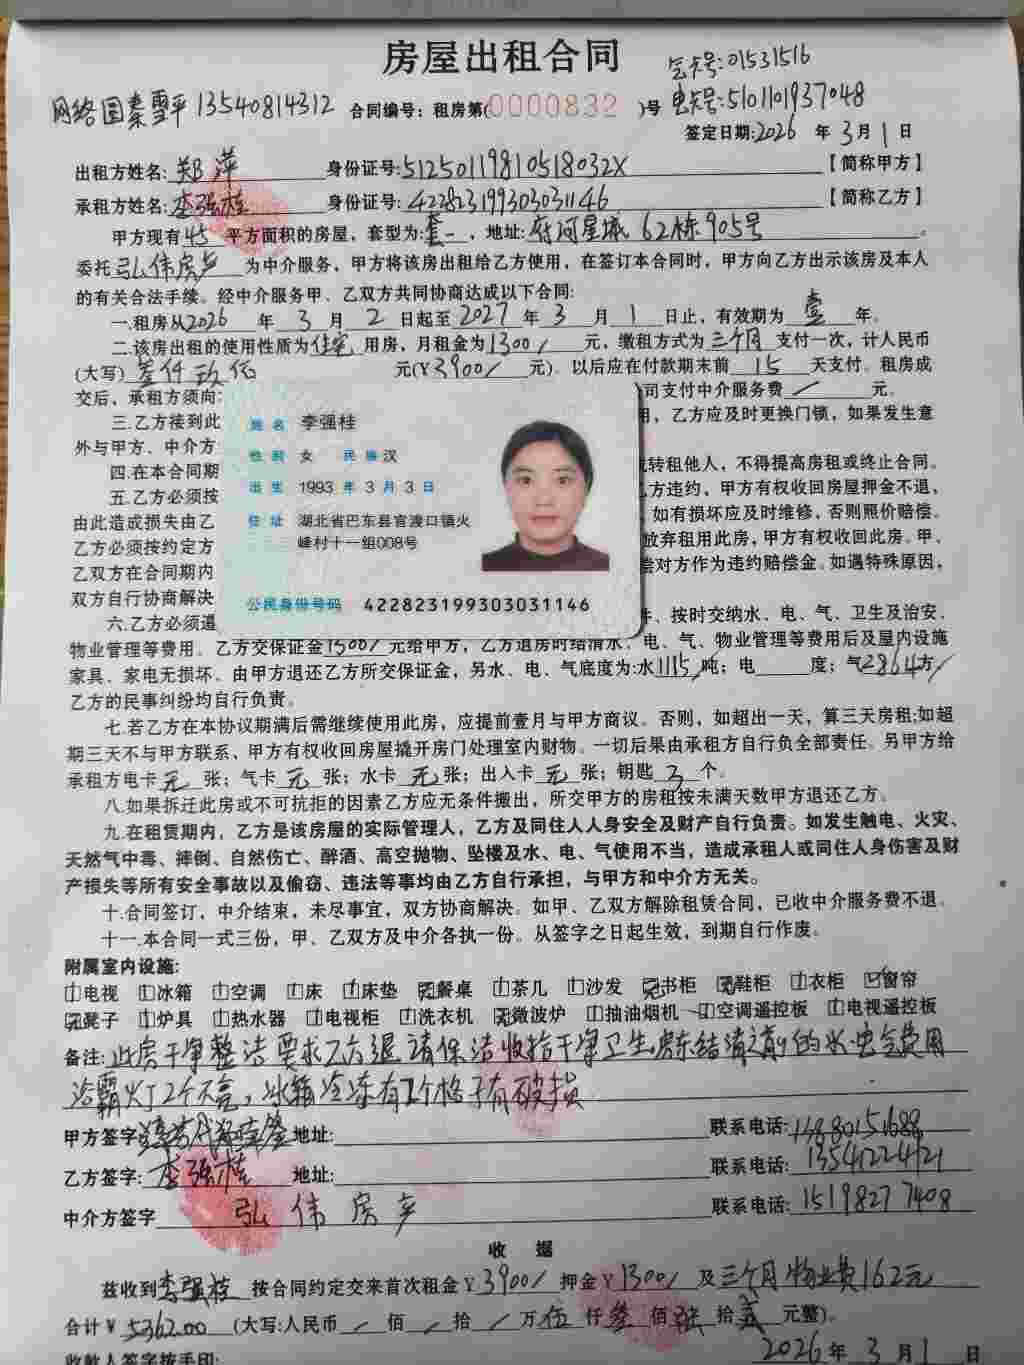 房屋出租合同
气卡号:01531516
网络图秦雪平 13540814312 合同编号：租房第(0000832)号 电卡号:5101101937048
签定日期:2026 年 3 月 1 日
出租方姓名:郑萍 身份证号:51250119810518032X 【简称甲方】
承租方姓名:李强桂 身份证号:422823199303031146 【简称乙方】
甲方现有 45 平方面积的房屋，套型为:套一，地址:府河星城 62栋905号。
委托 弘伟房产 为中介服务，甲方将该房出租给乙方使用，在签订本合同时，甲方向乙方出示该房及本人
的有关合法手续。经中介服务甲、乙双方共同协商达成以下合同:
一.租房从2026 年 3 月 2 日起至 2027 年 3 月 1 日止，有效期为 壹 年。
二.该房出租的使用性质为住宅用房，月租金为1300/ 元，缴租方式为三个月支付一次，计人民币
(大写) 叁仟玖佰 元(¥3900/ 元)。以后应在付款期末前 15 天支付。租房成
交后、承租方须向 司支付中介服务费 / 元。
三.乙方接到此 用，乙方应及时更换门锁，如果发生意
外与甲方、中介方
四.在本合同期 转租他人，不得提高房租或终止合同。
五.乙方必须按 方违约，甲方有权收回房屋押金不退，
由此造成损失由乙 如有损坏应及时维修，否则照价赔偿。
乙方必须按约定方 放弃租用此房，甲方有权收回此房。甲、
乙双方在合同期内 偿对方作为违约赔偿金。如遇特殊原因，
双方自行协商解决
姓名 李强桂
性别 女 民族 汉
出生 1993 年 3 月 3 日
住址 湖北省巴东县官渡口镇火
峰村十一组008号
公民身份号码 422823199303031146
六.乙方必须遵 、按时交纳水、电、气、卫生及治安、
物业管理等费用。乙方交保证金1300/ 元给甲方，乙方退房时结清水、电、气、物业管理等费用后及屋内设施
家具、家电无损坏、由甲方退还乙方所交保证金，另水、电、气底度为:水1115/吨；电 度；气2864方/
乙方的民事纠纷均自行负责。
七.若乙方在本协议期满后需继续使用此房，应提前壹月与甲方商议。否则，如超出一天，算三天房租;如超
期三天不与甲方联系、甲方有权收回房屋撬开房门处理室内财物。一切后果由承租方自行负全部责任。另甲方给
承租方电卡 元 张；气卡 元 张；水卡 元 张；出入卡 元 张；钥匙 3 个。
八.如果拆迁此房或不可抗拒的因素乙方应无条件搬出，所交甲方的房租按未满天数甲方退还乙方。
九.在租赁期内，乙方是该房屋的实际管理人，乙方及同住人人身安全及财产自行负责。如发生触电、火灾、
天然气中毒、摔倒、自然伤亡、醉酒、高空抛物、坠楼及水、电、气使用不当，造成承租人或同住人身伤害及财
产损失等所有安全事故以及偷窃、违法等事均由乙方自行承担，与甲方和中介方无关。
十.合同签订，中介结束，未尽事宜，双方协商解决。如甲、乙双方解除租赁合同，已收中介服务费不退。
十一.本合同一式三份，甲、乙双方及中介各执一份。从签字之日起生效，到期自行作废。
附属室内设施:
电视 冰箱 空调 床 床垫 餐桌 茶几 沙发 书柜 鞋柜 衣柜 窗帘
凳子 炉具 热水器 电视柜 洗衣机 微波炉 抽油烟机 空调遥控板 电视遥控板
备注:此房干净整洁要求乙方退请保洁收拾干净卫生房东结清之前的水电气费用
浴霸灯2个不亮，冰箱冷冻有1个格子有破损
甲方签字: 地址: 联系电话:
乙方签字:李强桂 地址: 联系电话:13541224121
中介方签字 弘伟房产 联系电话:15198277408
收 据
兹收到李强桂 按合同约定交来首次租金¥3900/ 押金¥1300/ 及三个月物业费162元
合计¥5362.00 (大写:人民币 / 佰 / 拾 / 万伍仟叁佰陆拾贰元整)。
收款人签字按手印: 2026年3月1日